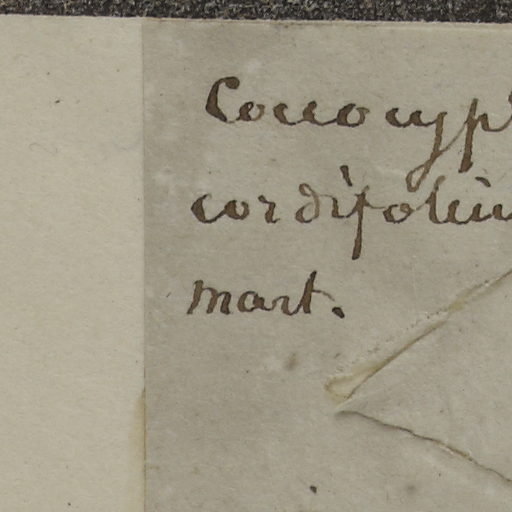 Coccocyp
cordifoliu
mart.